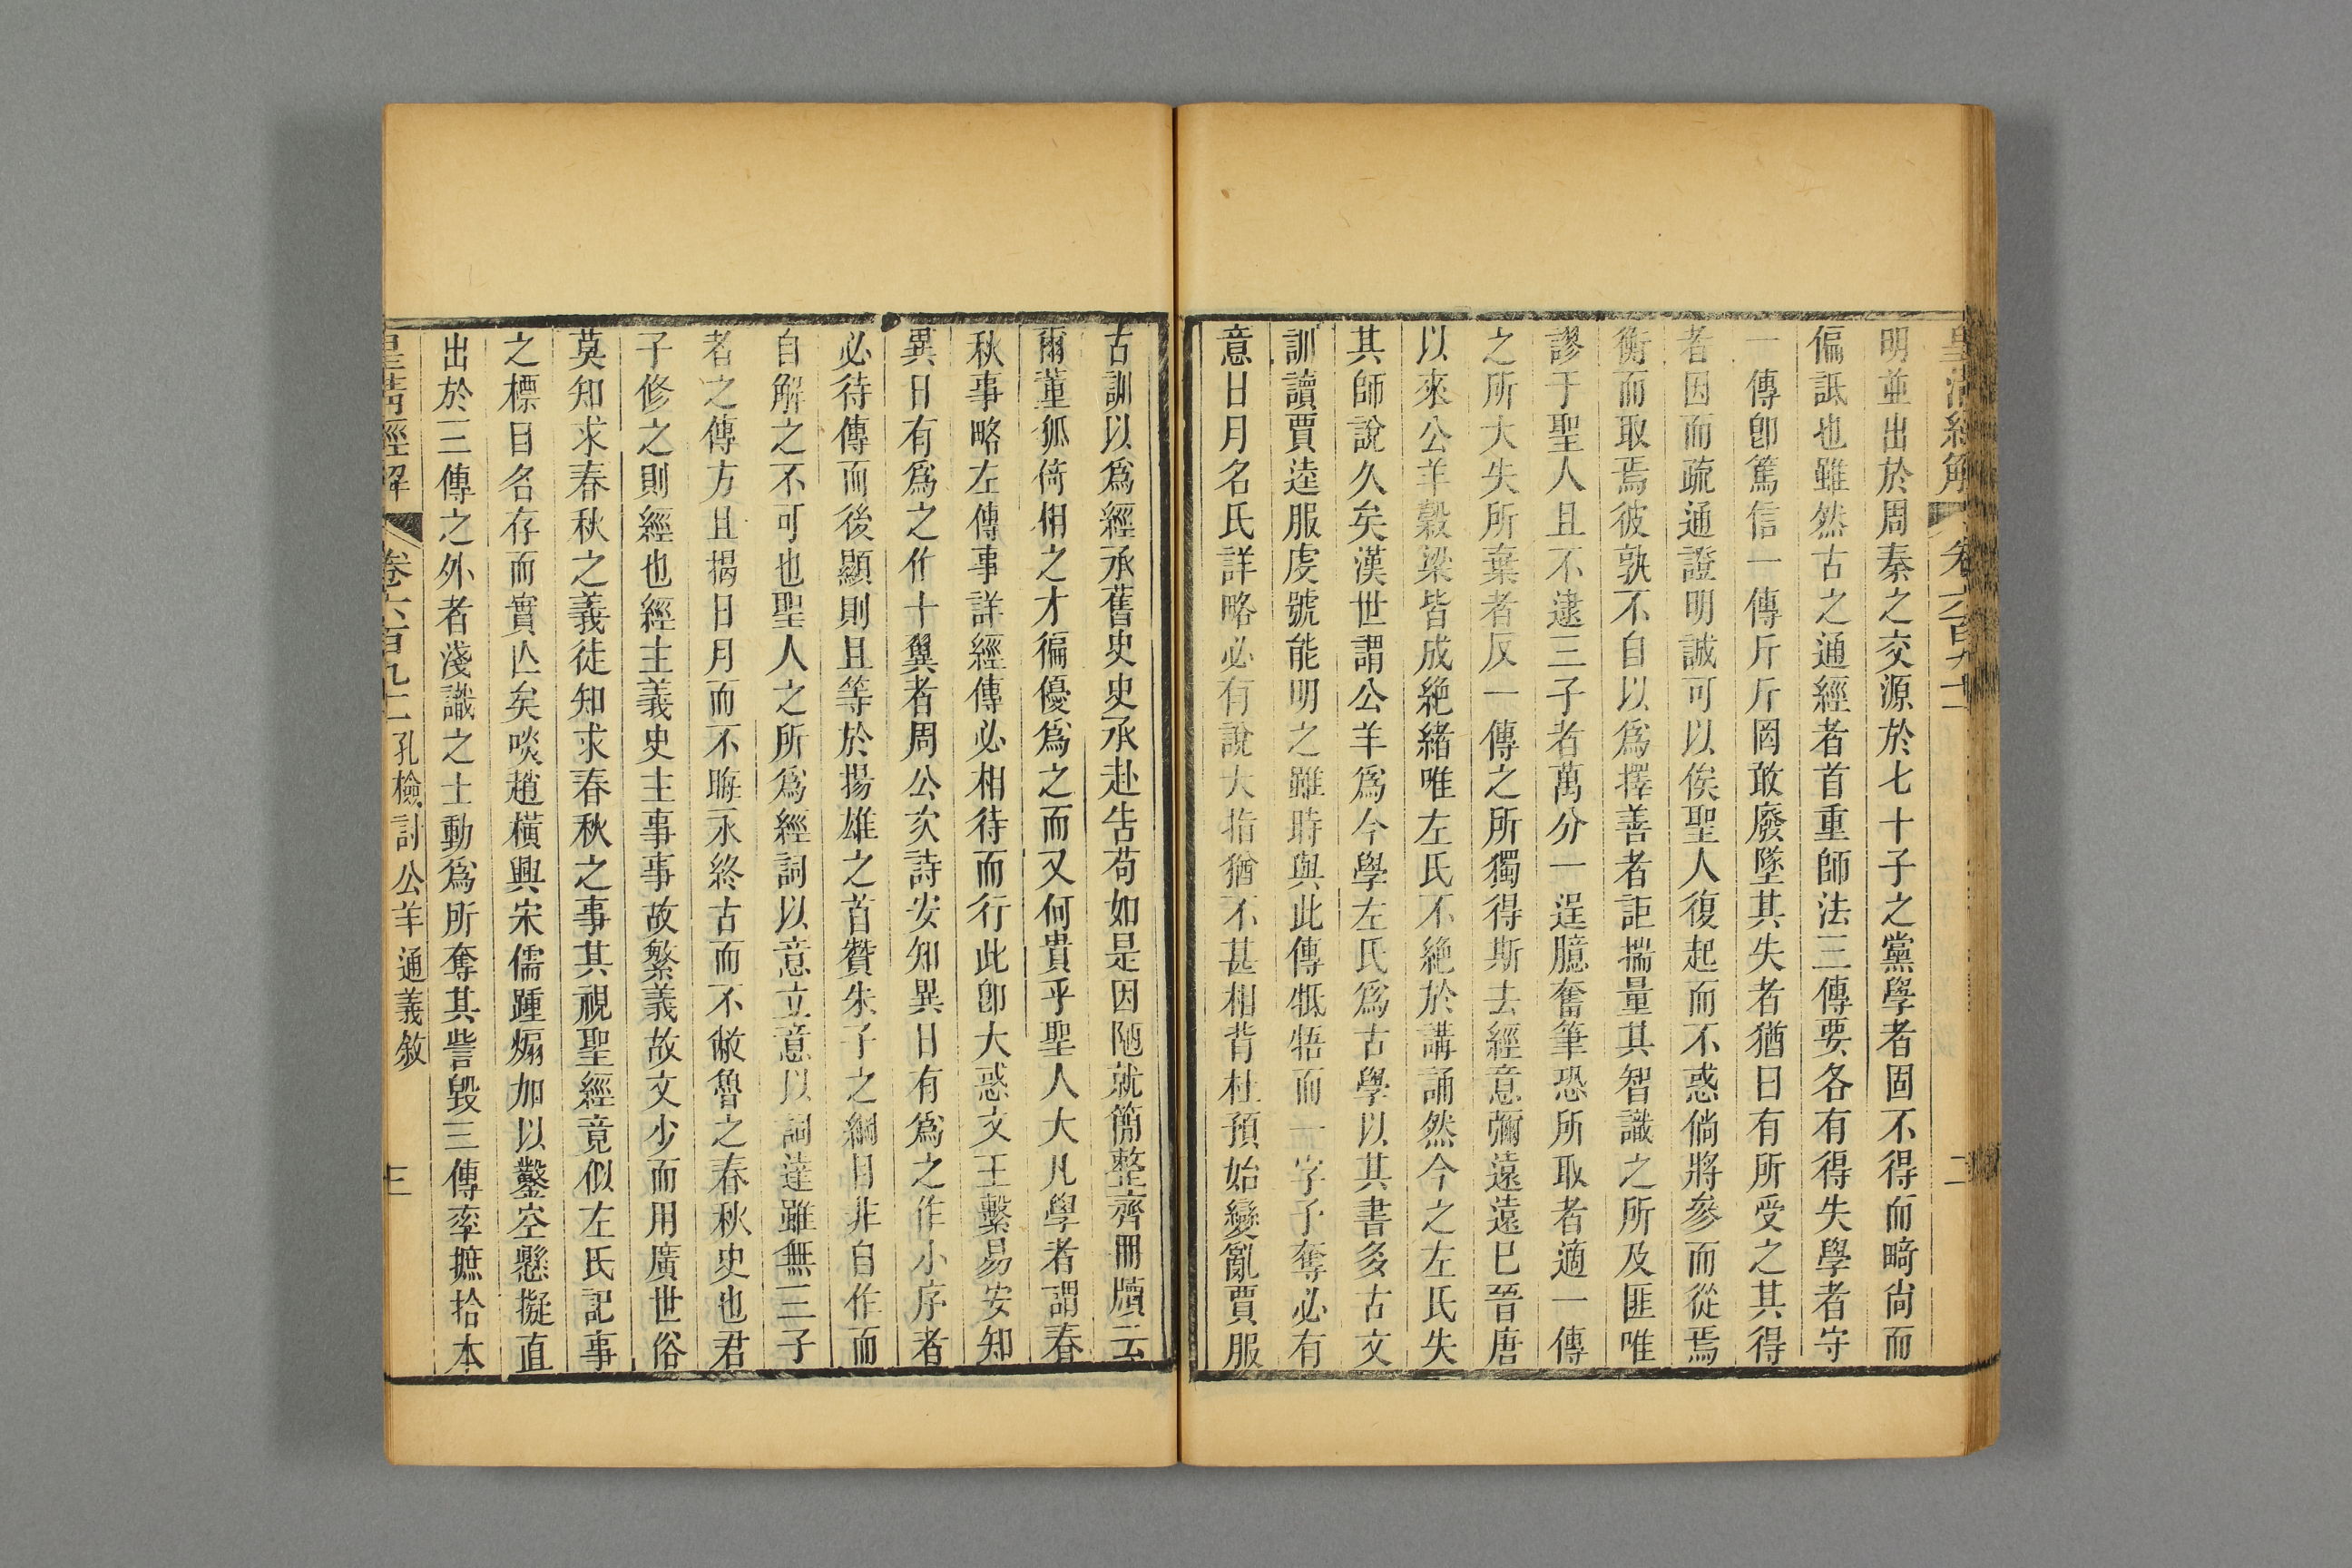 皇清經解
卷六百九十
二
明並出於周秦之交源於七十子之黨學者固不得而畸尙而
偏詆也雖然古之通經者首重師法三傳要各有得失學者守
一傳卽篤信一傳斤斤罔敢廢墜其失者猶曰有所受之其得
者因而疏通證明誠可以俟聖人復起而不惑倘將參而從焉
衡而取焉彼孰不自以爲擇善者詎揣量其智識之所及匪唯
謬于聖人且不逮三子者萬分一逞臆奮筆恐所取者適一傳
之所大失所棄者反一傳之所獨得斯去經意彌遠遠已晉唐
以來公羊穀梁皆成絶緖唯左氏不絶於講誦然今之左氏失
其師說久矣漢世謂公羊爲今學左氏爲古學以其書多古文
訓讀賈逵服虔號能明之雖時與此傳牴牾而一字予奪必有
意日月名氏詳略必有說大指猶不甚相背杜預始變亂賈服
古訓以爲經承舊史史承赴告苟如是因陋就簡整齊冊牘云
爾董狐倚相之才徧優爲之而又何貴乎聖人大凡學者謂春
秋事略左傳事詳經傳必相待而行此卽大惑文王繫易安知
異日有爲之作十翼者周公次詩安知異日有爲之作小序者
必待傳而後顯則且等於揚雄之首贊朱子之綱目非自作而
自解之不可也聖人之所爲經詞以意立意以詞達雖無三子
者之傳方且揭日月而不晦永終古而不敝魯之春秋史也君
子修之則經也經主義史主事事故繁義故文少而用廣世俗
莫知求春秋之義徒知求春秋之事其視聖經竟似左氏記事
之標目名存而實亾矣啖趙橫興宋儒踵煽加以鑿空懸擬直
出於三傳之外者淺識之士動爲所奪其訾毀三傳率摭拾本
皇淸經解
卷六百九十二
孔檢討公羊通義敘
三